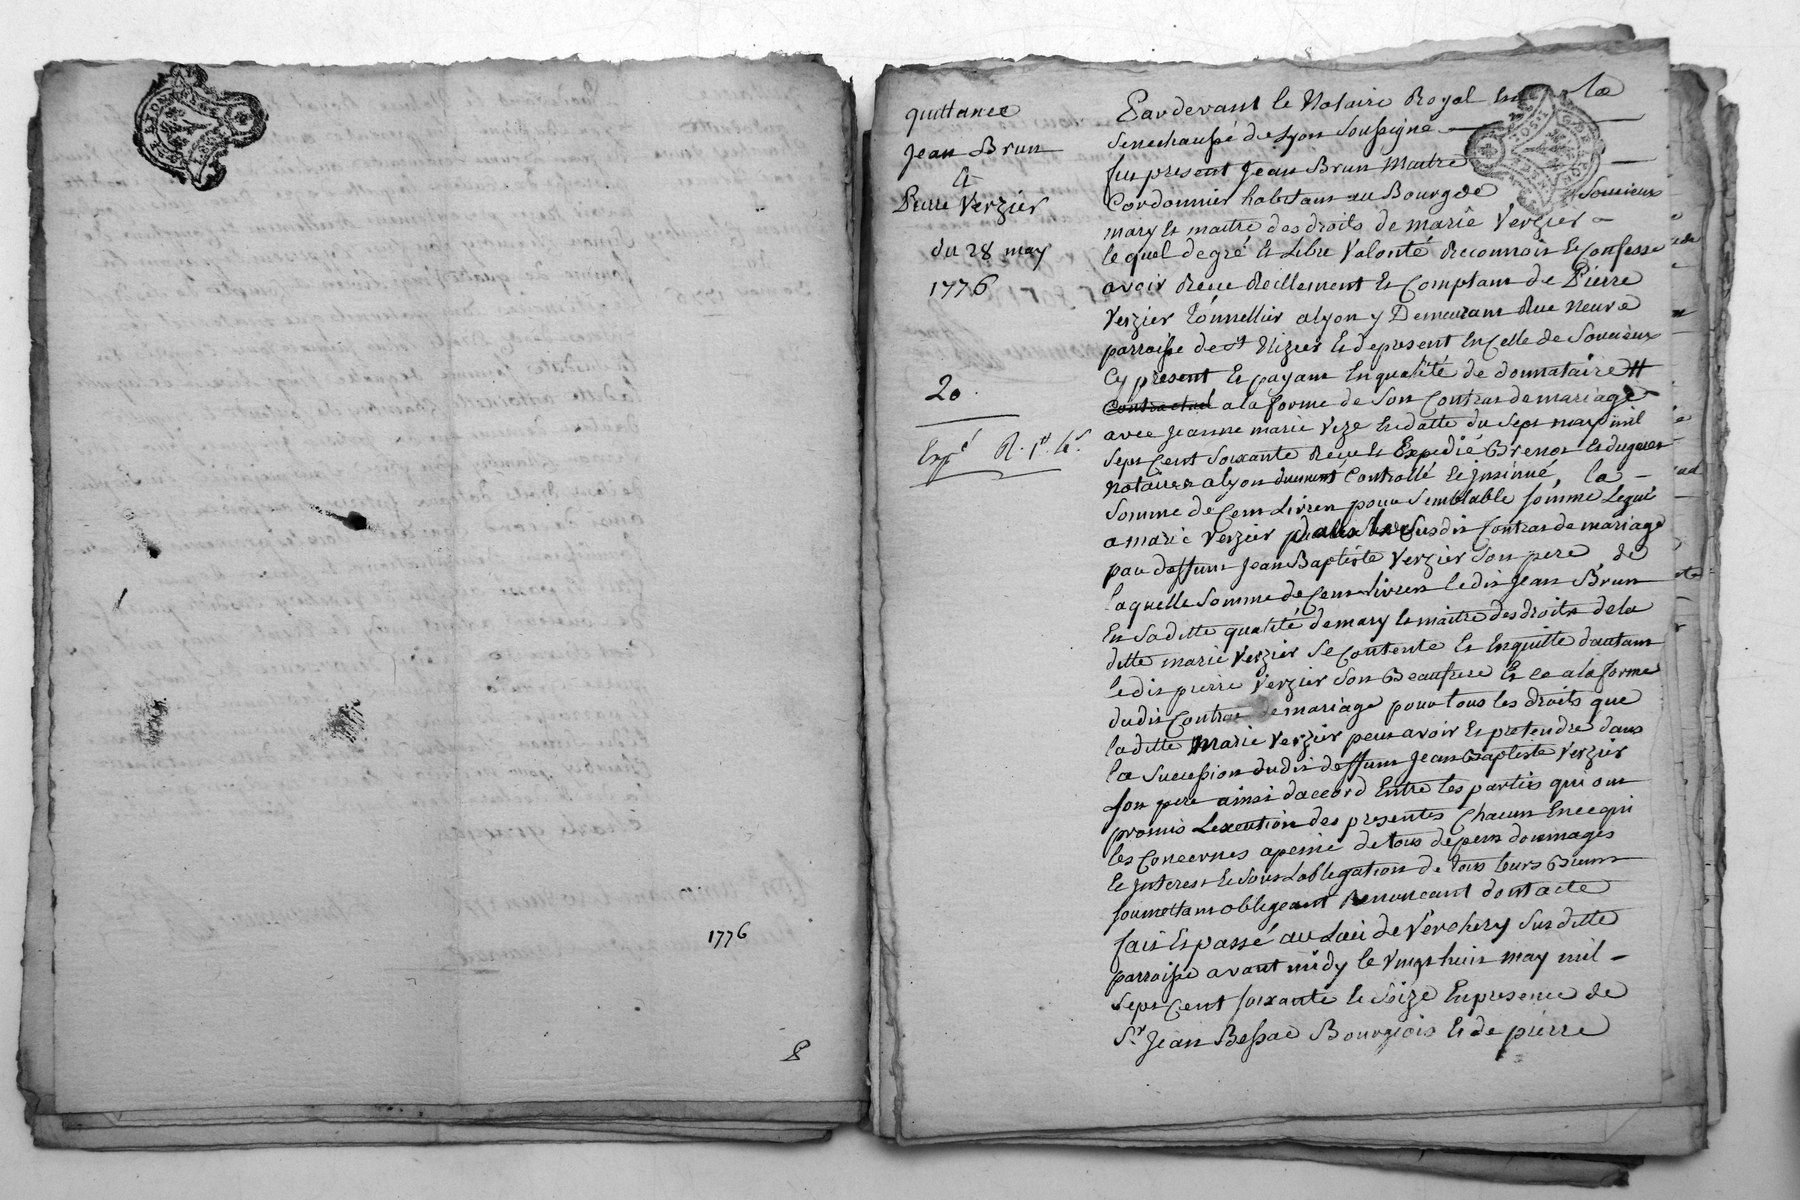 1776
8
quittance
Jean Brun
à
Pierre Verzier
du 28 may
1776
20
Exp.é
Pardevant le Notaire Royal En la
Senechaussé de Lyon Soussigné
fut present Jean Brun Maitre
Cordonnier habitant au Bourg de Soucieux
mary et maitre des droits de marie Verzier
lequel de gré et Libre Volonté Reconnoit et Confesse
avoir Reçu Réellement et Comptant de Pierre
Verzier Tonnellier a lyon y Demeurant Rue Neuve
parroisse de St Nizier et de present En Celle de Soucieux
Cy present et payant En qualité de donnataire #
Contractuel a la forme de Son Contrat de mariage
avec Jeanne marie Vize En datte du Sept may mil
Sept Cent Soixante Reçu et Expedié Brenot et dugueyt
Notaires a lyon duement Controllé et Insinué, la
Somme de Cent Livres pour Semblable Somme Legué
a marie Verzier dans le Susdit Contrat de mariage
par deffunt Jean Baptiste Verzier Son pere, de
laquelle Somme de Cent Livres ledit Jean Brun
En Saditte qualité de mary et maitre des droits de la
ditte marie Verzier Se Contente et En quitte d'autant
ledit pierre Verzier Son Beaufrere Et ce a la forme
dudit Contrat de mariage pour tous les droits que
laditte Marie Verzier peut avoir et pretendre dans
la Sucession dudit deffunt Jean Baptiste Verzier
Son pere ainsi d'accord Entre les parties qui ont
promis L'execution des presentes Chacun En ce qui
les Concernes a peine de tous depens dommages
et Interest et Sous L'obligation de tous leurs Biens
Soumettant obligeant Renonceant dont acte
fait et passé au Lieu de Verchery Susditte
parroisse avant midy le Vingt huit may mil
Sept Cent Soixante et Seize En presence de
Sr Jean Bessac Bourgeois et de pierre